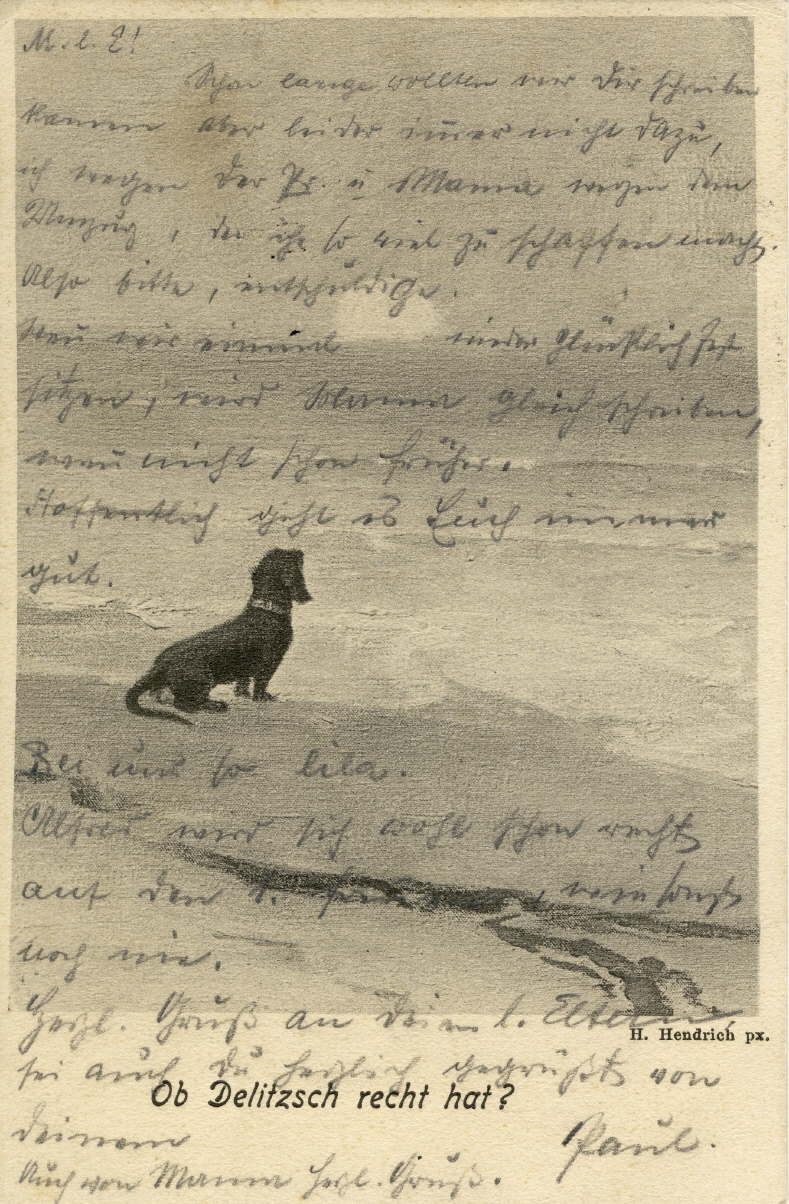 M. l. E!
Schon lange wollten wir Dir schreiben
kamen aber leider im̄er nicht dazu,
ich wegen der Pr. u Mama wegen dem
Umzug, der ihr so viel zu schaffen macht.
Also bitte, entschuldige.
Wen̄ wir einmal wieder glücklich fest
sitzen, wird Mama gleich schreiben,
wen̄ nicht schon früher.
Hoffentlich geht es Euch immer
gut.
Bei uns so lila.
Alfred wird sich wohl schon recht
auf den 1. freuen, wie sonst
noch nie.
Herzl. Gruß an Deine l. Eltern,
H. Hendrich px.
sei auch Du herzlich gegrüßt von
Ob Delitzsch recht hat?
Deinem Paul.
Auch von Mama herzl. Gruß.